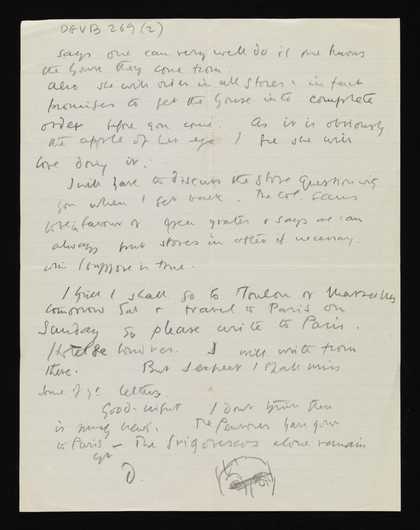 DGVB 269 (2)
says one can very well do if one knows
the house they come from.
Also she will order in all stores & in fact
promises to get the house into complete
order before you come. As it is obviously
the apple of her eye I see she will
love doing it.
I will have to discuss the stove question with
you when I get back. The col seems
to be in favour of open grates & says we can
always put stoves in after if necessary.
wh: I suppose is true.
I think I shall go to Toulon or Marseilles
tomorrow Sat & travel to Paris on
Sunday so please write to Paris.
Hotel de Londres. I will write from
there. But I expect I shall miss
some of yr letters.
Good-night I don't know there
is much news. The have gone
to Paris – The alone remain
yr
D.